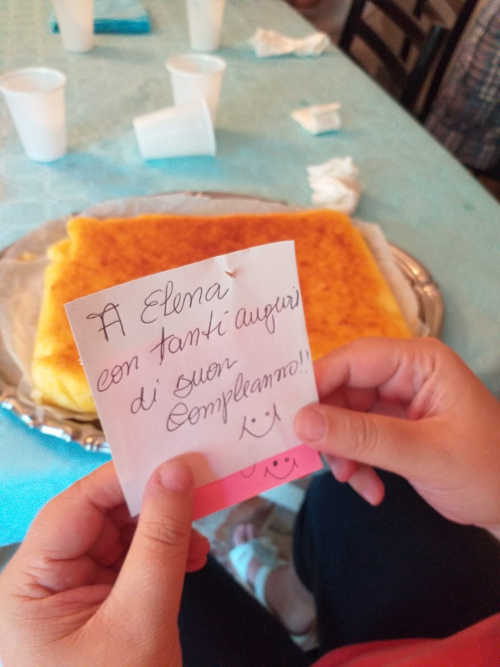 A Elena
con tanti auguri
di buon
compleanno!!